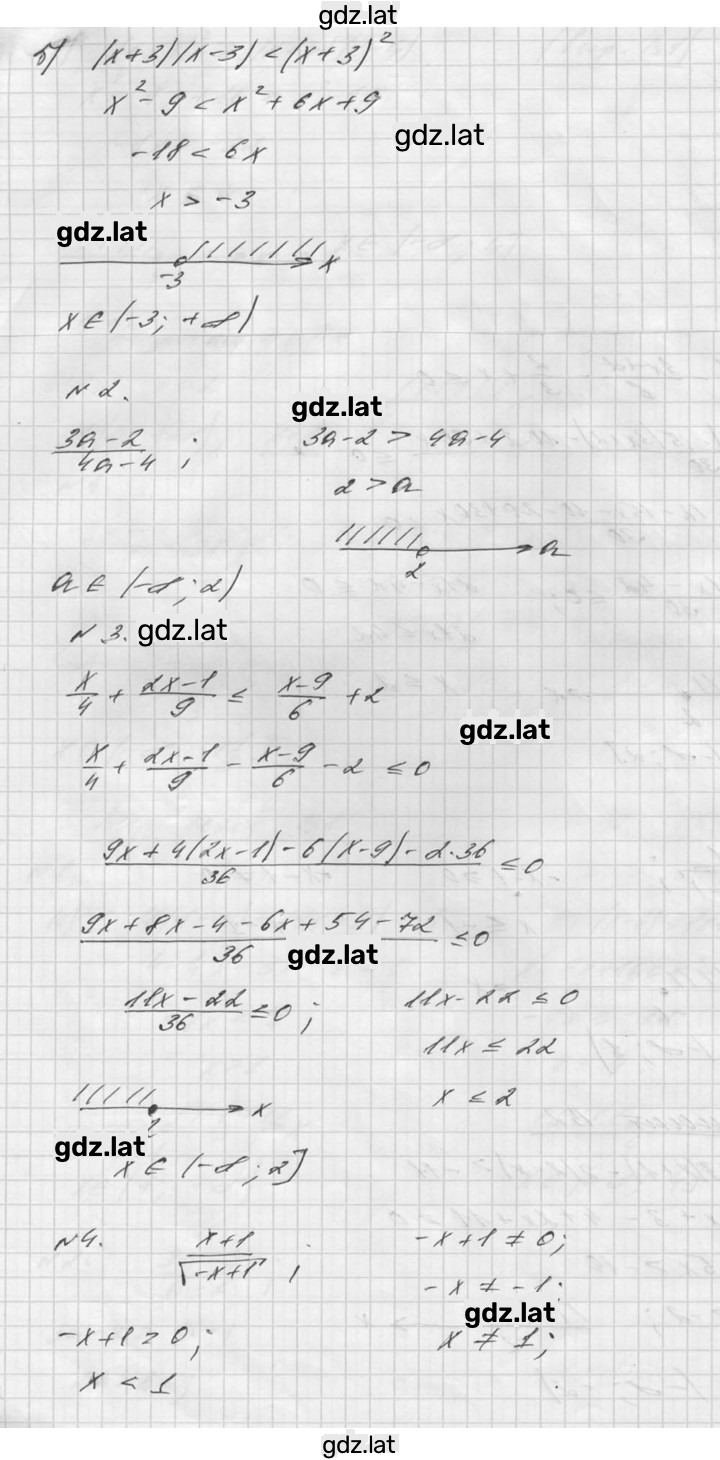 gdz.lat
б) (x+3)(x-3) < (x+3)²
x² - 9 < x² + 6x + 9
gdz.lat
-18 < 6x
x > -3
gdz.lat
-3 x
x ∈ (-3; +∞)
N 2.
gdz.lat
(3a-2)/(4a-4); 3a-2 > 4a-4
2 > a
2 a
a ∈ (-∞; 2)
N 3. gdz.lat
x/4 + (2x-1)/9 ≤ (x-9)/6 + 2
gdz.lat
x/4 + (2x-1)/9 - (x-9)/6 - 2 ≤ 0
(9x + 4(2x-1) - 6(x-9) - 2·36)/36 ≤ 0
(9x + 8x - 4 - 6x + 54 - 72)/36 ≤ 0
gdz.lat
(11x - 22)/36 ≤ 0; 11x - 22 ≤ 0
11x ≤ 22
x ≤ 2
x
gdz.lat
x ∈ (-∞; 2]
N 4. (x+1)/√(-x+1); -x+1 ≠ 0;
-x ≠ -1;
gdz.lat
-x+1 > 0; x ≠ 1;
x < 1
gdz.lat